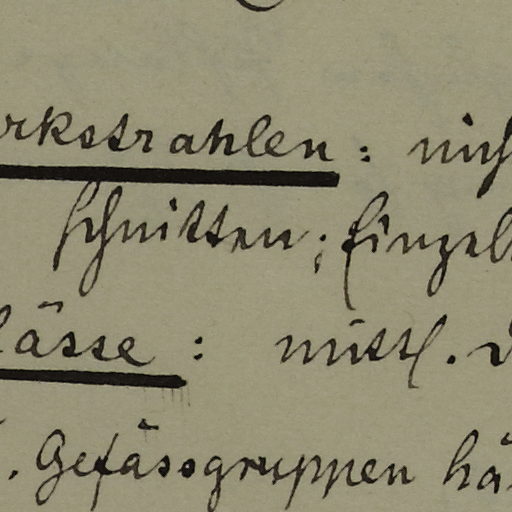 rkstrahlen : nich
schnitten; Einzel
ässe : mittl.
. Gefässgruppen hä